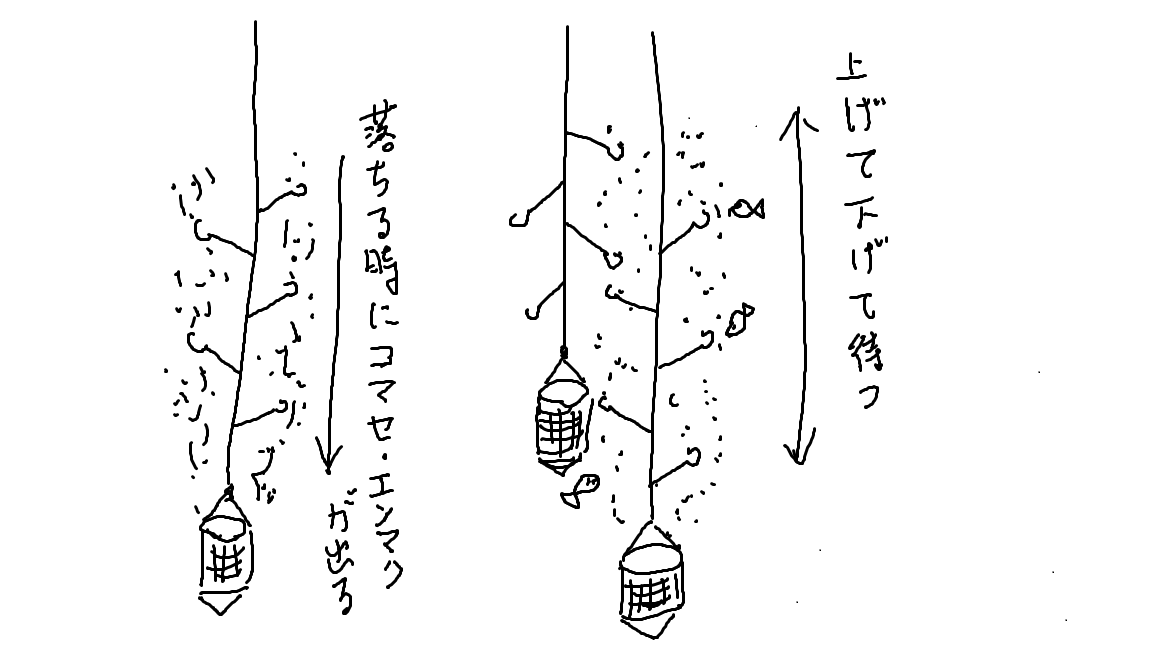 上げて下げて待つ
落ちる時にコマセ・エンマク
が出る